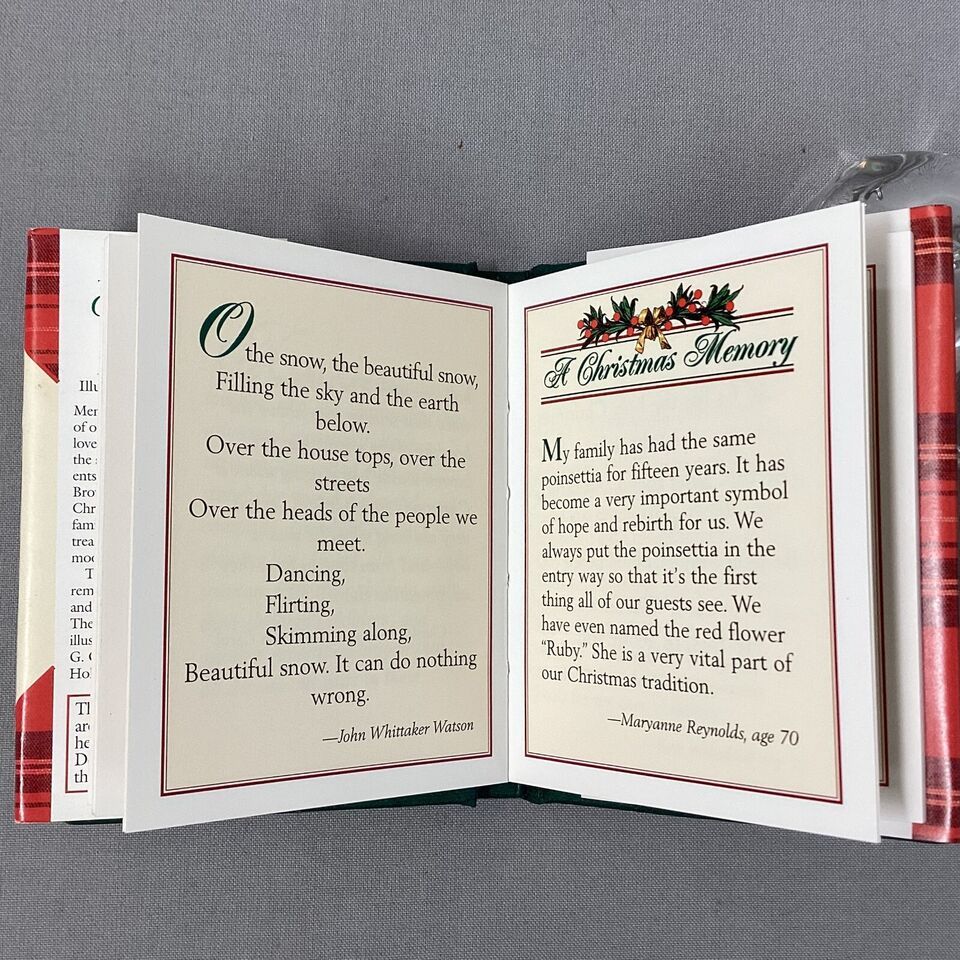 Illu
Mer
of o
love
the
ents
Bro
Chr
fam
trea
moo
T
rem
and
The
illus
G. C
Ho
Th
are
he
D
th
O the snow, the beautiful snow,
Filling the sky and the earth
below.
Over the house tops, over the
streets
Over the heads of the people we
meet.
Dancing,
Flirting,
Skimming along,
Beautiful snow. It can do nothing
wrong.
—John Whittaker Watson
A Christmas Memory
My family has had the same
poinsettia for fifteen years. It has
become a very important symbol
of hope and rebirth for us. We
always put the poinsettia in the
entry way so that it's the first
thing all of our guests see. We
have even named the red flower
“Ruby.” She is a very vital part of
our Christmas tradition.
—Maryanne Reynolds, age 70